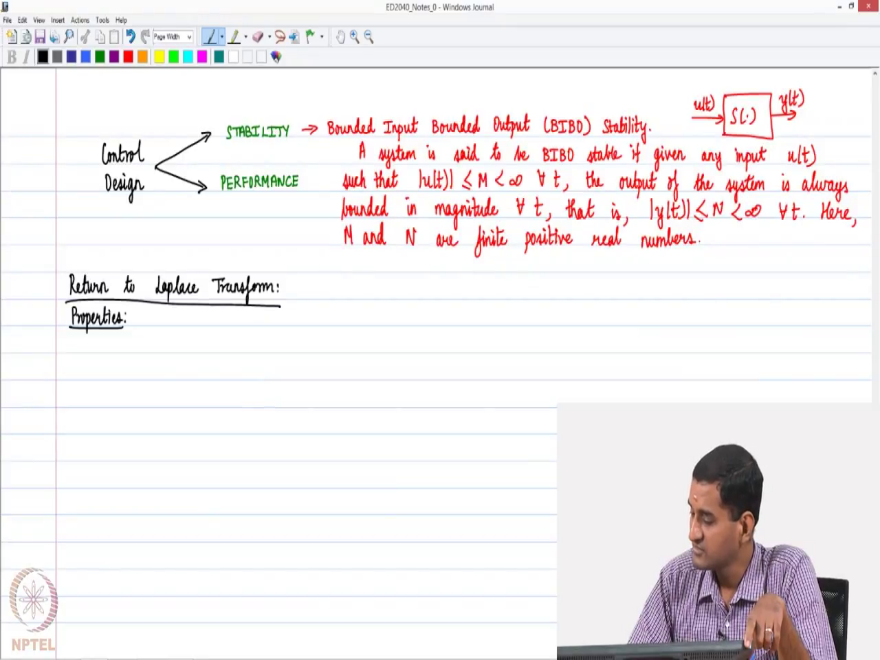 ED2040_Notes_0 - Windows Journal
File Edit View Insert Actions Tools Help
Page Width
B I
u(t) S(.) y(t)
Control Design
STABILITY → Bounded Input Bounded Output (BIBO) Stability.
A system is said to be BIBO stable if given any input u(t)
such that |u(t)| ≤ M < ∞ ∀ t, the output of the system is always
bounded in magnitude ∀ t, that is, |y(t)| ≤ N < ∞ ∀ t. Here,
M and N are finite positive real numbers.
PERFORMANCE
Return to Laplace Transform:
Properties:
NPTEL